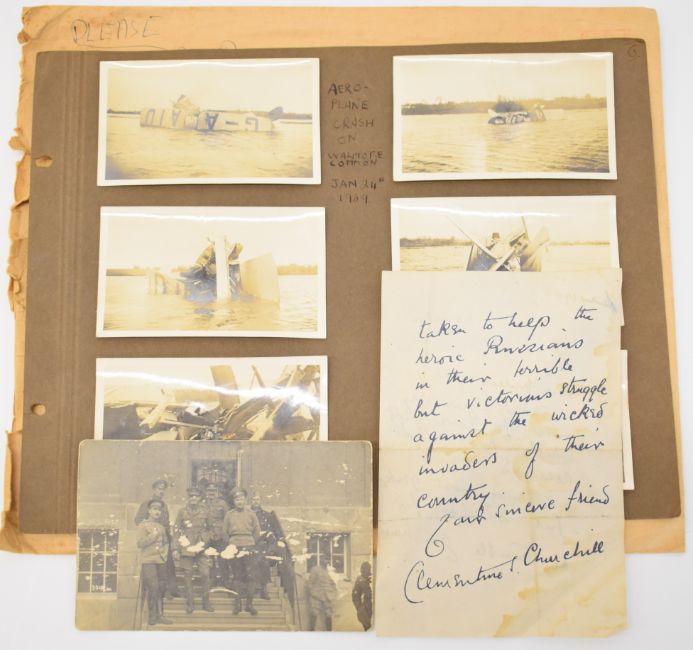 PLEASE
6.
AERO-
PLANE
CRASH
ON
WALMORE
COMMON
JAN 24th
1939.
G-A
taken to help the
heroic Russians
in their terrible
but victorious struggle
against the wicked
invaders of their
country.
Your sincere friend
Clementine S. Churchill